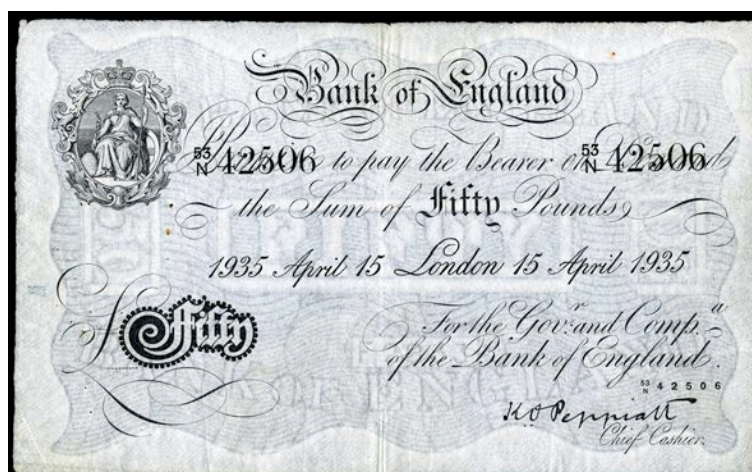 Bank of England
I Promise to pay the Bearer on Demand
53/N 42506 53/N 42506
the Sum of Fifty Pounds
1935 April 15 London 15 April 1935
£ Fifty
For the Gov.r and Comp.a
of the Bank of England.
53/N 42506
K O Peppiatt
Chief Cashier.